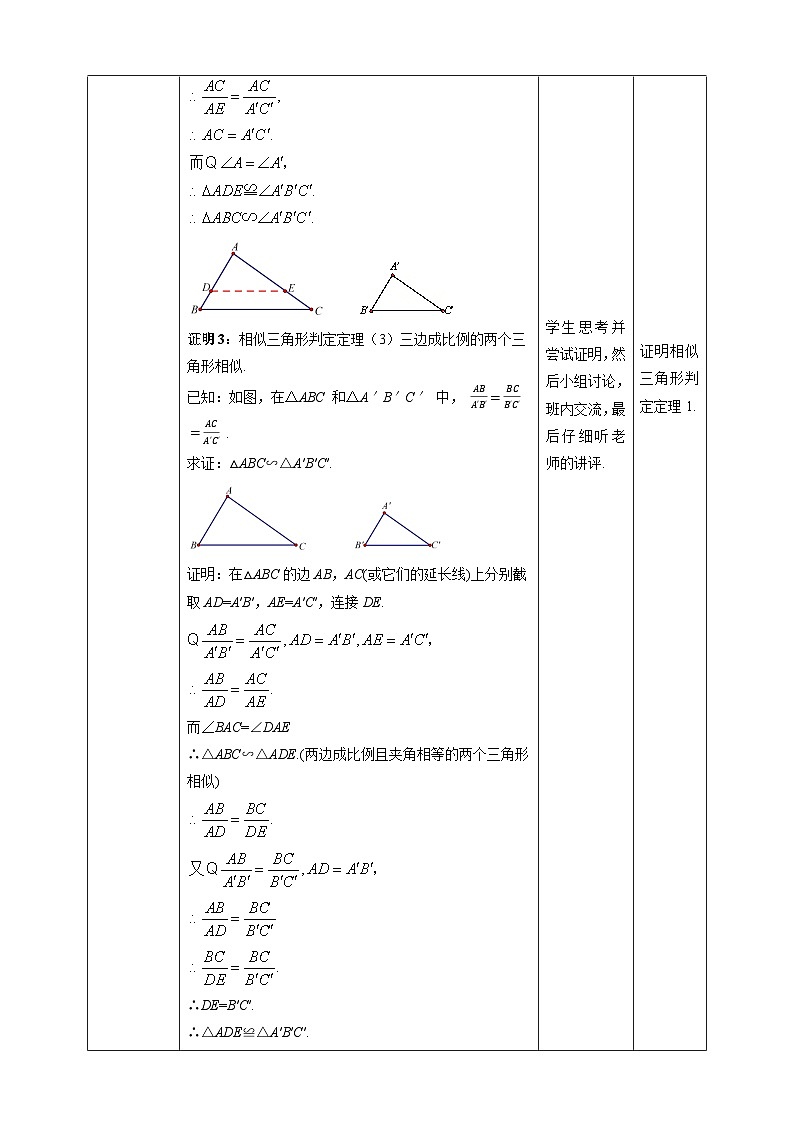 ∴ AC/AE = AC/A′C′,
∴ AC = A′C′.
而Q ∠A = ∠A′,
∴ ΔADE≌∠A′B′C′.
∴ ΔABC∽∠A′B′C′.
A
D E
B C
A′
B′ C′
证明3：相似三角形判定定理（3）三边成比例的两个三
角形相似.
已知：如图，在△ABC 和△A′B′C′ 中， AB/A′B′ = BC/B′C′
= AC/A′C′ .
求证：△ABC∽△A′B′C′.
A
B C
A′
B′ C′
证明：在△ABC的边AB，AC(或它们的延长线)上分别截
取AD=A′B′，AE=A′C′，连接DE.
Q AB/A′B′ = AC/A′C′, AD = A′B′, AE = A′C′,
∴ AB/AD = AC/AE.
而∠BAC=∠DAE
∴△ABC∽△ADE.(两边成比例且夹角相等的两个三角形
相似)
∴ AB/AD = BC/DE.
又Q AB/A′B′ = BC/B′C′, AD = A′B′,
∴ AB/AD = BC/B′C′
∴ BC/DE = BC/B′C′.
∴DE=B′C′.
∴△ADE≌△A′B′C′.
学生思考并
尝试证明，然
后小组讨论，
班内交流，最
后仔细听老
师的讲评.
证明相似
三角形判
定定理1.